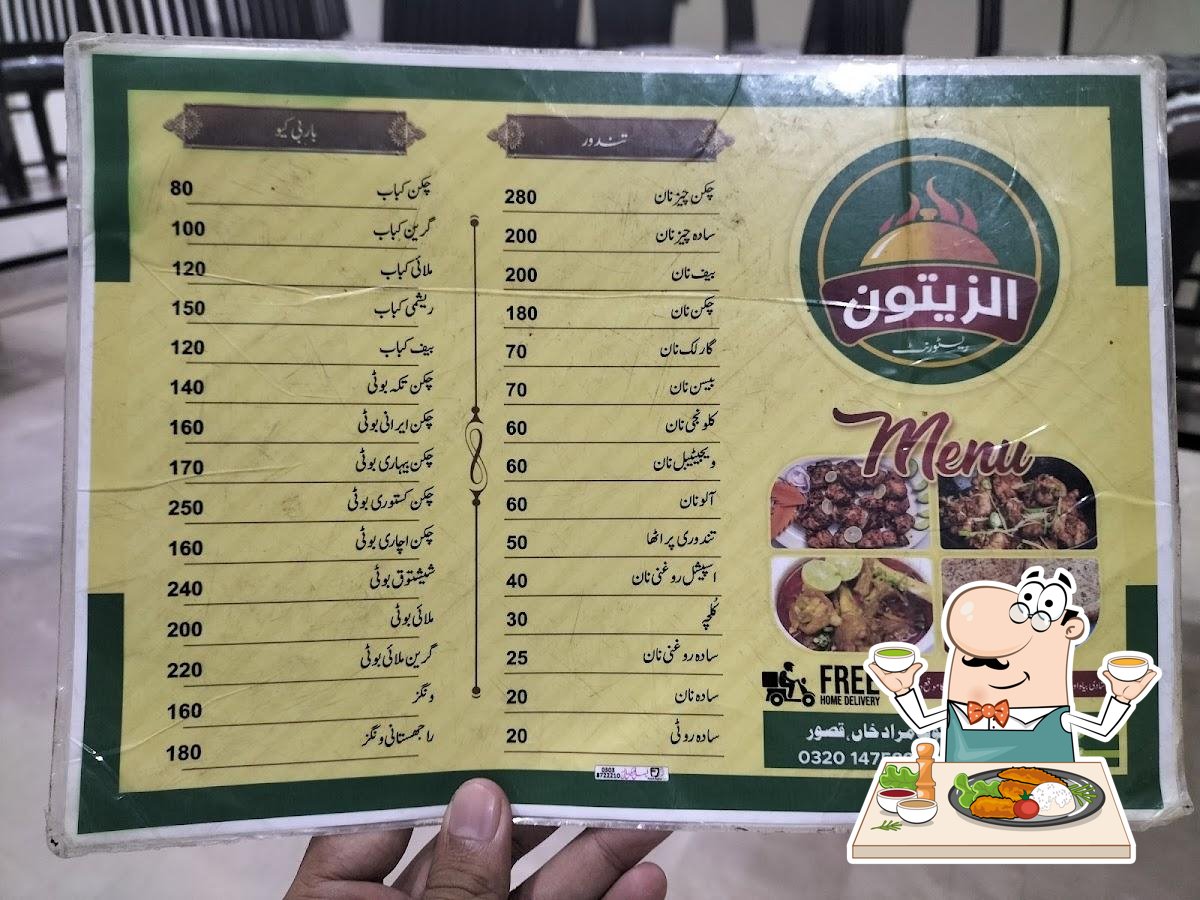 باربی کیو
چکن کباب 80
گرین کباب 100
ملائی کباب 120
ریشمی کباب 150
بیف کباب 120
چکن تکہ بوٹی 140
چکن ایرانی بوٹی 160
چکن بہاری بوٹی 170
چکن کستوری بوٹی 250
چکن اچاری بوٹی 160
شیشتوق بوٹی 240
ملائی بوٹی 200
گرین ملائی بوٹی 220
ونگز 160
راجھستانی ونگز 180
تندور
چکن چیز نان 280
سادہ چیز نان 200
بیف نان 200
چکن نان 180
گارلک نان 70
بیسن نان 70
کلونجی نان 60
ویجیٹیبل نان 60
آلو نان 60
تندوری پراٹھا 50
اسپیشل روغنی نان 40
کُلچہ 30
سادہ روغنی نان 25
سادہ نان 20
سادہ روٹی 20
الزیتون
ریسٹورنٹ
Menu
FREE
HOME DELIVERY
مراد خاں، قصور
0320 1475
0303
8722210